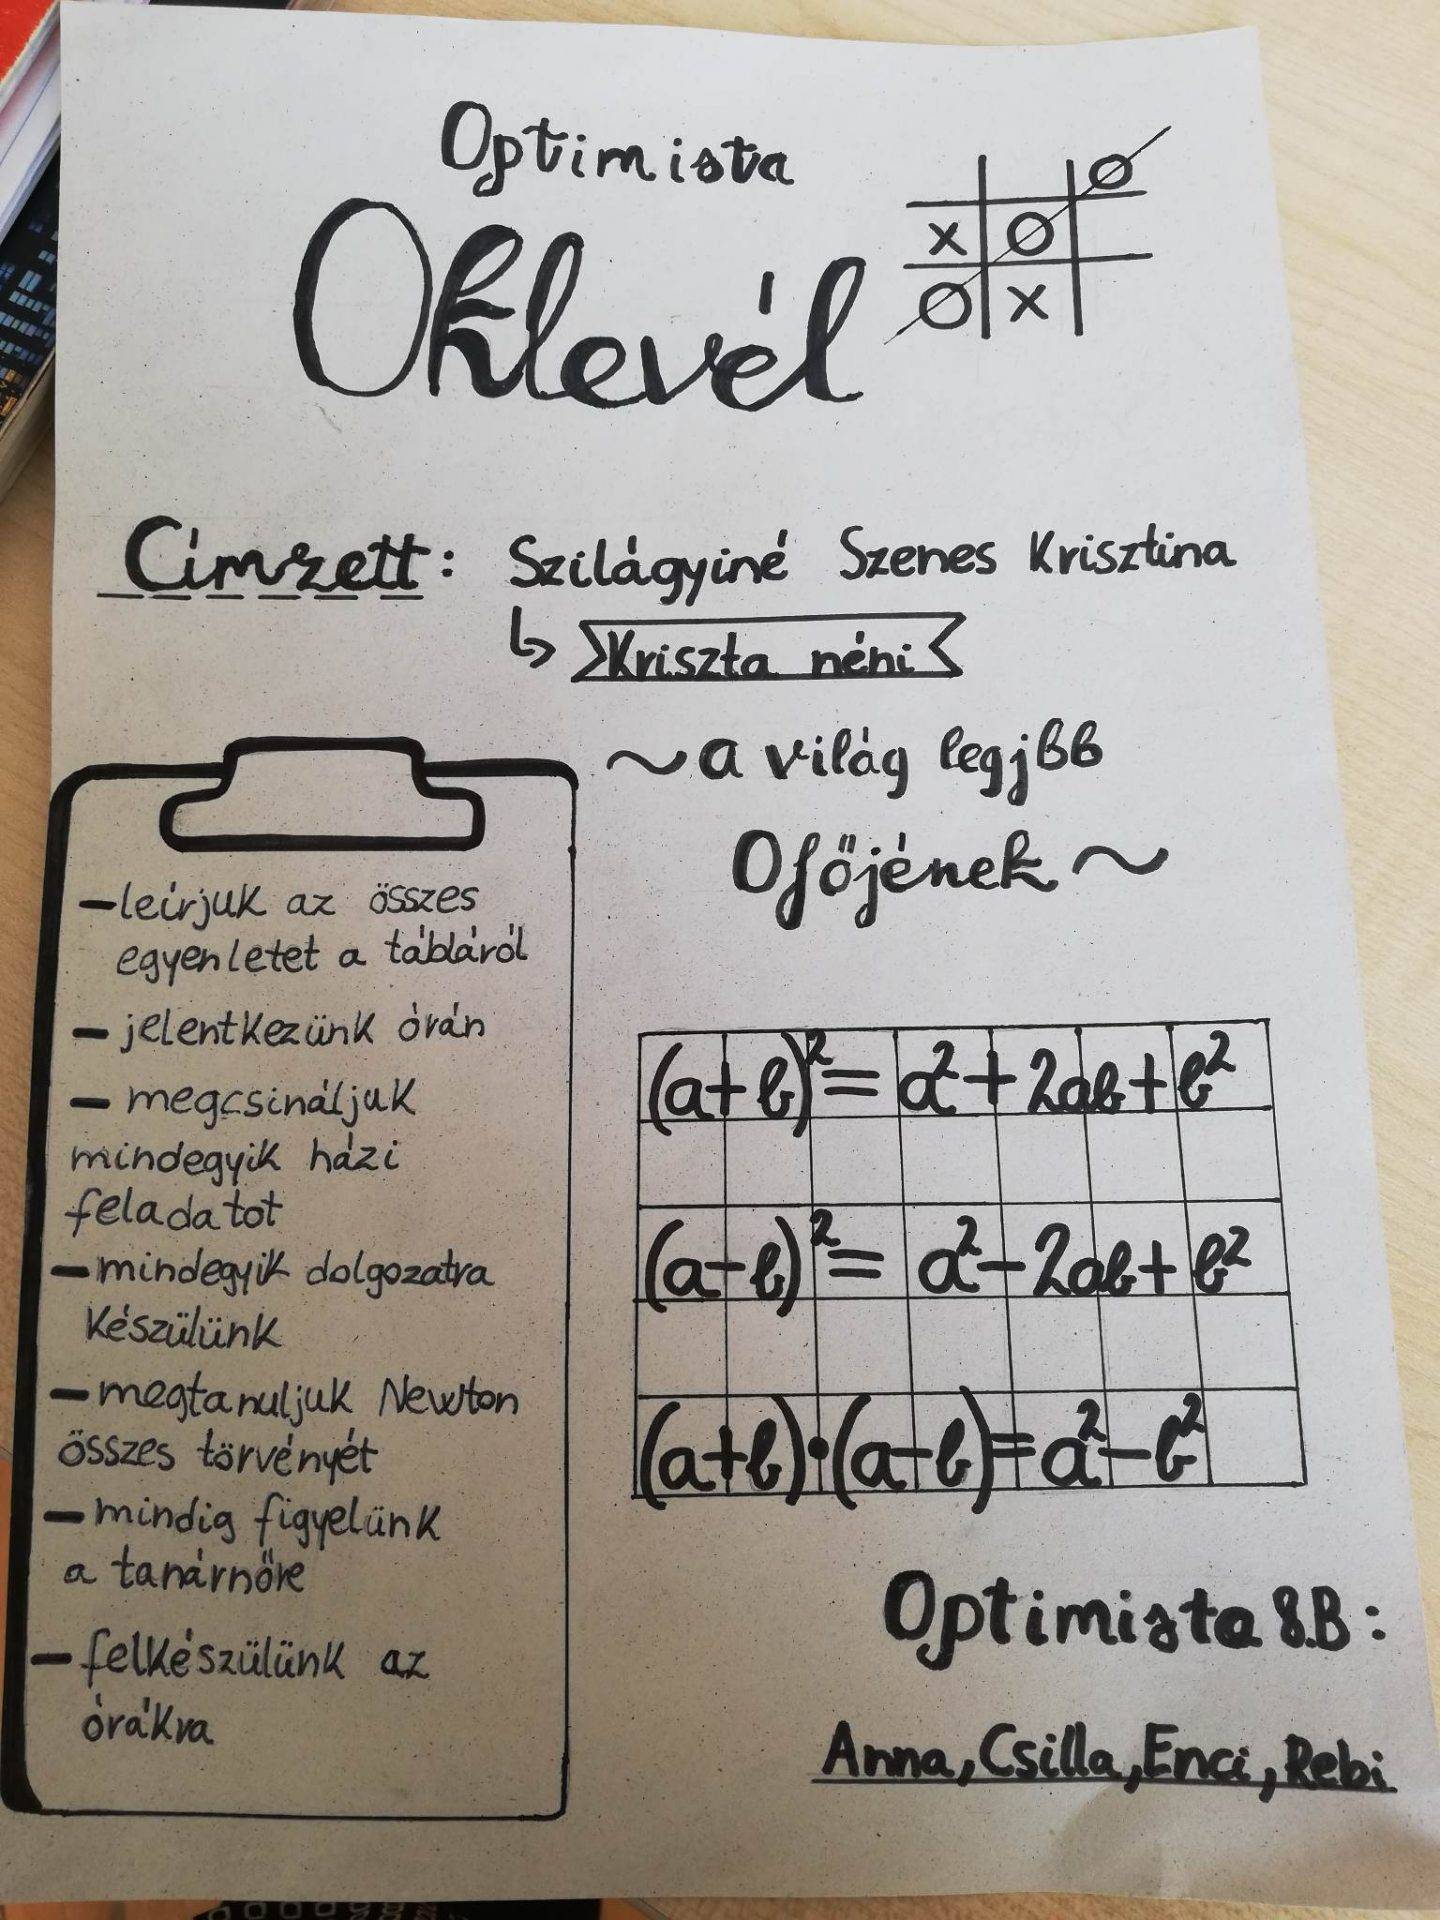 Optimista
Oklevél
X O O
O X
Címzett: Szilágyiné Szenes Krisztina
↳ Kriszta néni
~a világ legjbb
Ofőjének~
–leírjuk az összes
egyenletet a tábláról
– jelentkezünk órán
– megcsináljuk
mindegyik házi
feladatot
–mindegyik dolgozatra
készülünk
–megtanuljuk Newton
összes törvényét
–mindig figyelünk
a tanárnőre
–felkészülünk az
órákra
(a+b)²= a²+2ab+b²
(a-b)²= a²-2ab+b²
(a+b)·(a-b)=a²-b²
Optimista 8.B:
Anna, Csilla, Enci, Rebi